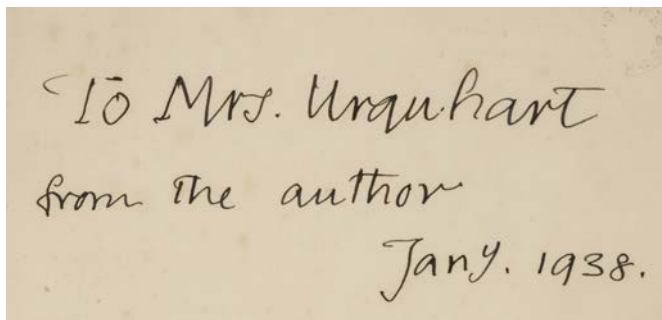 To Mrs. Urquhart
from the author
Jany. 1938.